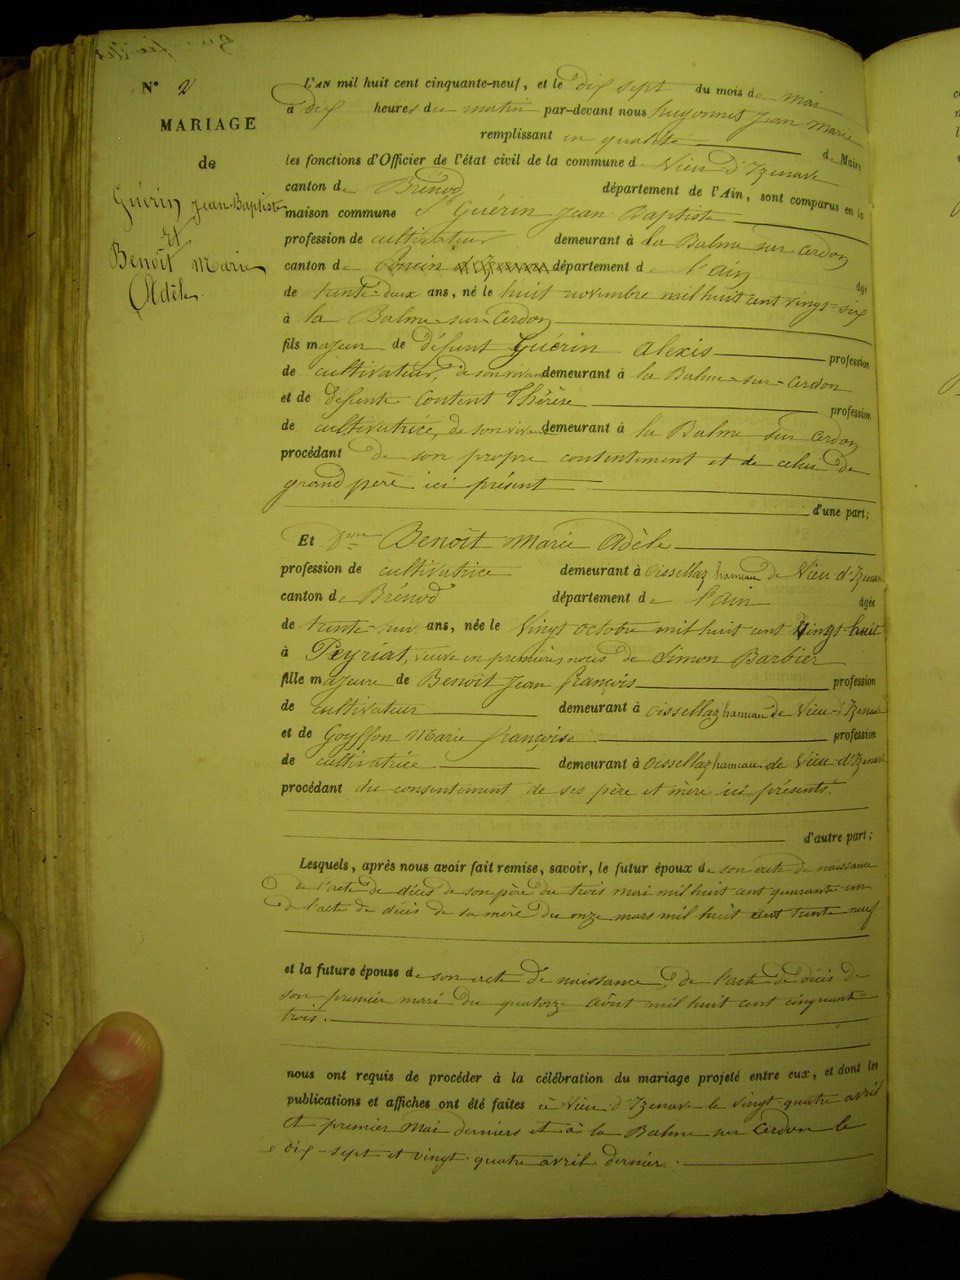 N° 2
MARIAGE
de
Guérin Jean-Baptiste
Et
Benoît Marie
Adèle
L'AN mil huit cent cinquante-neuf, et le dix sept du mois de mai
à dix heures du matin par-devant nous hugonnet Jean Marie
remplissant en qualité de Maire
les fonctions d'Officier de l'état civil de la commune de Vieu d'Izenave
canton de Brénod département de l'Ain, sont comparus en la
maison commune Sr Guérin Jean Baptiste
profession de cultivateur demeurant à la Balme sur Cerdon
canton de département de l'ain âgé
de trente-deux ans, né le huit novembre mil huit cent vingt-six
à la Balme sur Cerdon
fils majeur de défunt Guérin Alexis profession
de cultivateur, de son vivant demeurant à la Balme sur Cerdon
et de défunte Content Thérèse profession
de cultivatrice, de son vivant demeurant à la Balme sur Cerdon
procédant de son propre contentement et de celui de
grand père ici présent
d'une part;
Et Benoît Marie Adèle
profession de cultivatrice demeurant à Oissellaz hameau de Vieu d'Izenave
canton de Brenod département de l'ain âgée
de trente ans, née le vingt octobre mil huit cent vingt-huit
à Peyriat, veuve en premières noces de Simon Barbier
fille majeure de Benoît Jean françois profession
de cultivateur demeurant à Oissellaz hameau de Vieu-d'Izenave
et de Goyffon Marie françoise profession
de cultivatrice demeurant à Oissellaz hameau de Vieu-d'Izenave
procédant du consentement de ses père et mère ici présents.
d'autre part;
Lesquels, après nous avoir fait remise, savoir, le futur époux de son acte de naissance
de l'acte de décès de son père du trois mai mil huit cent quarante-un
de l'acte de décès de sa mère du onze mars mil huit cent trente neuf
et la future épouse de son acte de naissance, de l'acte de décès de
son premier mari du quatorze août mil huit cent cinquante-
trois.
nous ont requis de procéder à la célébration du mariage projeté entre eux, et dont les
publications et affiches ont été faites à Vieu d'Izenave le vingt-quatre avril
et premier mai derniers et à la Balme sur Cerdon le
dix-sept et vingt-quatre avril dernier.